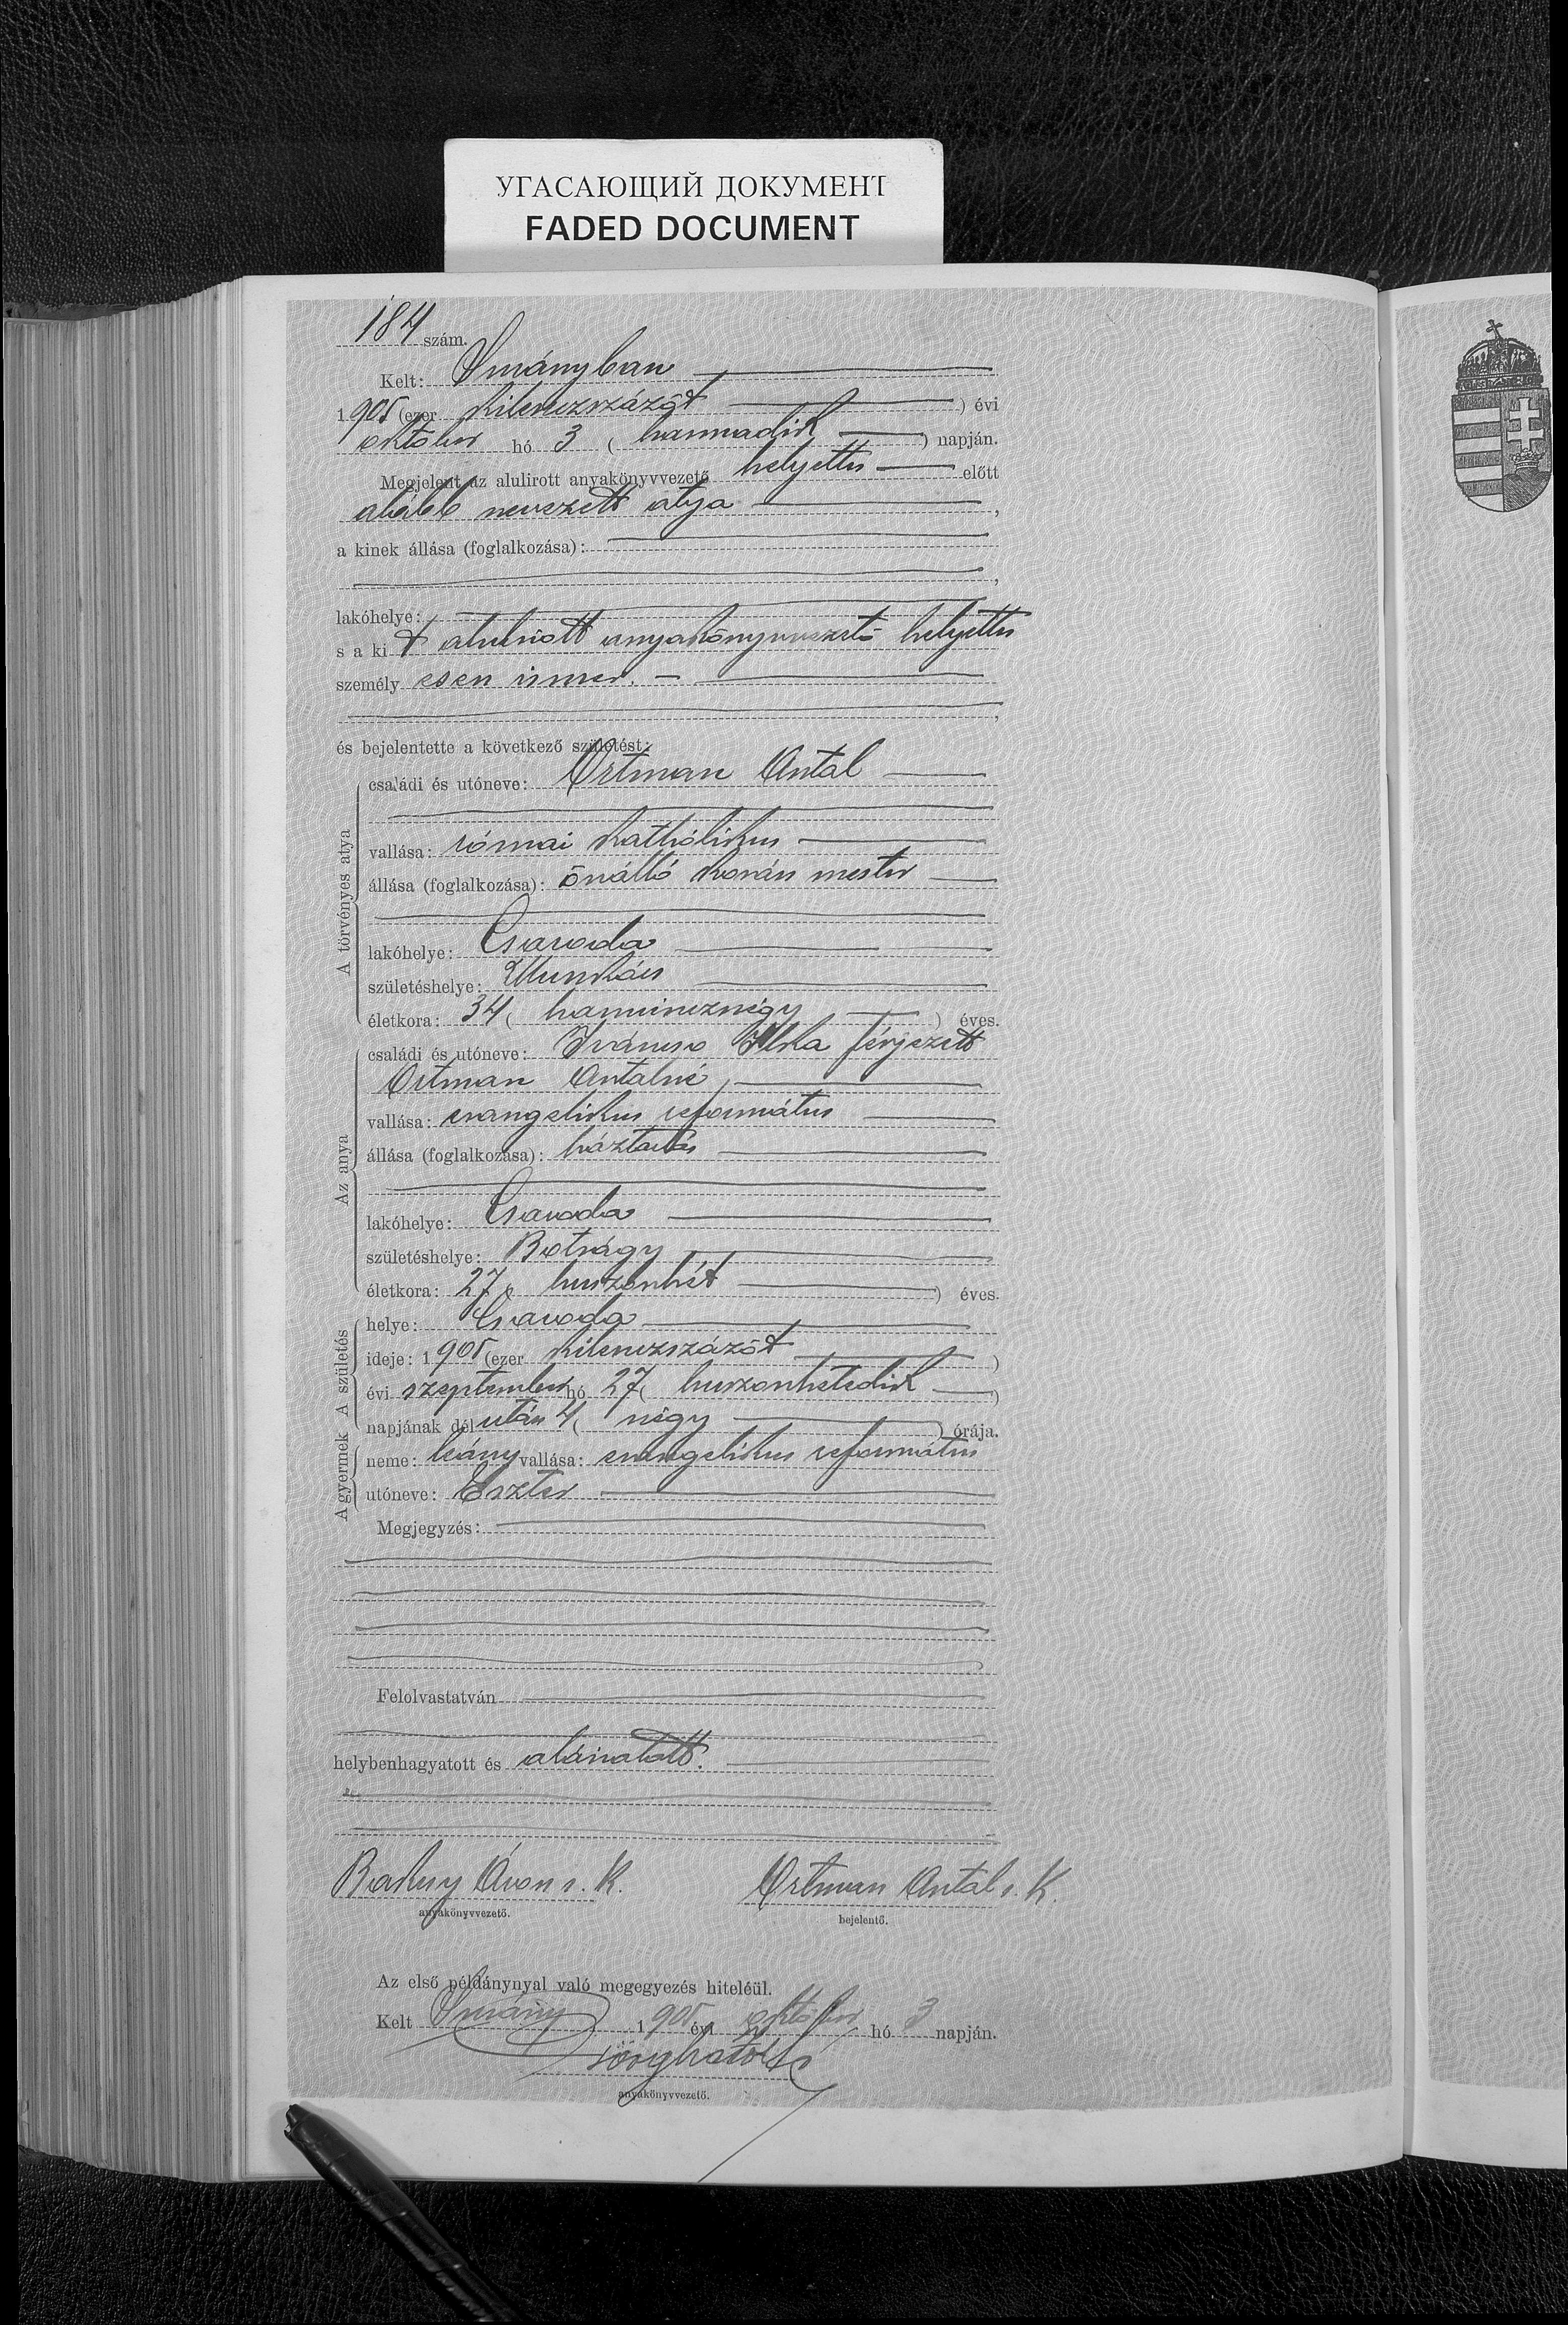 УГАСАЮЩИЙ ДОКУМЕНТ
FADED DOCUMENT
184 szám.
Kelt: Surányban
1905 (ezer kilenczszázöt) évi
október hó 3 (harmadik) napján.
Megjelent az alulirott anyakönyvvezető helyettes előtt
alább nevezett atya,
a kinek állása (foglalkozása):
lakóhelye:
s a ki t alulirott anyakönyvvezető helyettes
személy esen ismer.
és bejelentette a következő születést:
A törvényes atya
családi és utóneve: Ortman Antal
vallása: római katholikus
állása (foglalkozása): önálló kovács mester
lakóhelye: Csaroda
születéshelye: Munkács
életkora: 34 (harmincznégy) éves.
Az anya
családi és utóneve: Iváncsó Ilka férjezett
Ortman Antalné,
vallása: evangelikus református
állása (foglalkozása): háztartás
lakóhelye: Csaroda
születéshelye: Botrágy
életkora: 27 (huszonhét) éves.
A születés
helye: Csaroda
ideje: 1905 (ezer kilenczszázöt)
évi szeptember hó 27 (huszonhetedik)
napjának dél után 4 (négy) órája.
A gyermek
neme: leány vallása: evangelikus református
utóneve: Eszter
Megjegyzés:
Felolvastatván
helybenhagyatott és aláiratott.
Áron s. k. Ortman Antal s. k.
anyakönyvvezető. bejelentő.
Az első példánynyal való megegyezés hiteléül.
Kelt Surány 1905 évi október hó 3 napján.
anyakönyvvezető.